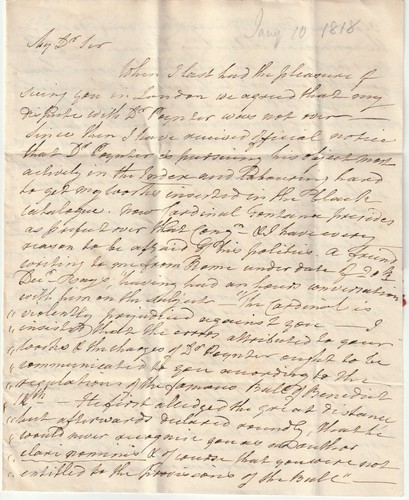 Jany 10 1818
My Dr Sir
When I last had the pleasure of
seeing you in London we agreed that my
dispute with Dr Poynter was not over —
Since then I have received official notice
that Dr Poynter is pursuing his object most
actively in the Index and labouring hard
to get my works inserted in the black
catalogue. Now Cardinal Fontana presides
as prefect over that Congn & I have every
reason to be afraid of his politics. A friend
writing to me from Rome under date of 20th
Decr says, having had an hours conversation
with him on the subject — The Cardinal is
" violently prejudiced against you — I
" insisted that the errors attributed to your
" works & the charges of Dr Poynter ought to be
" communicated to you according to the
" regulations of the famous Bull of Benedict
" 14th — He first alledged the great distance
" but afterwards declared roundly, that he
" would never recognise you as an author
" clari nominis & of course that you were not
" entitled to the provisions of the Bull" —